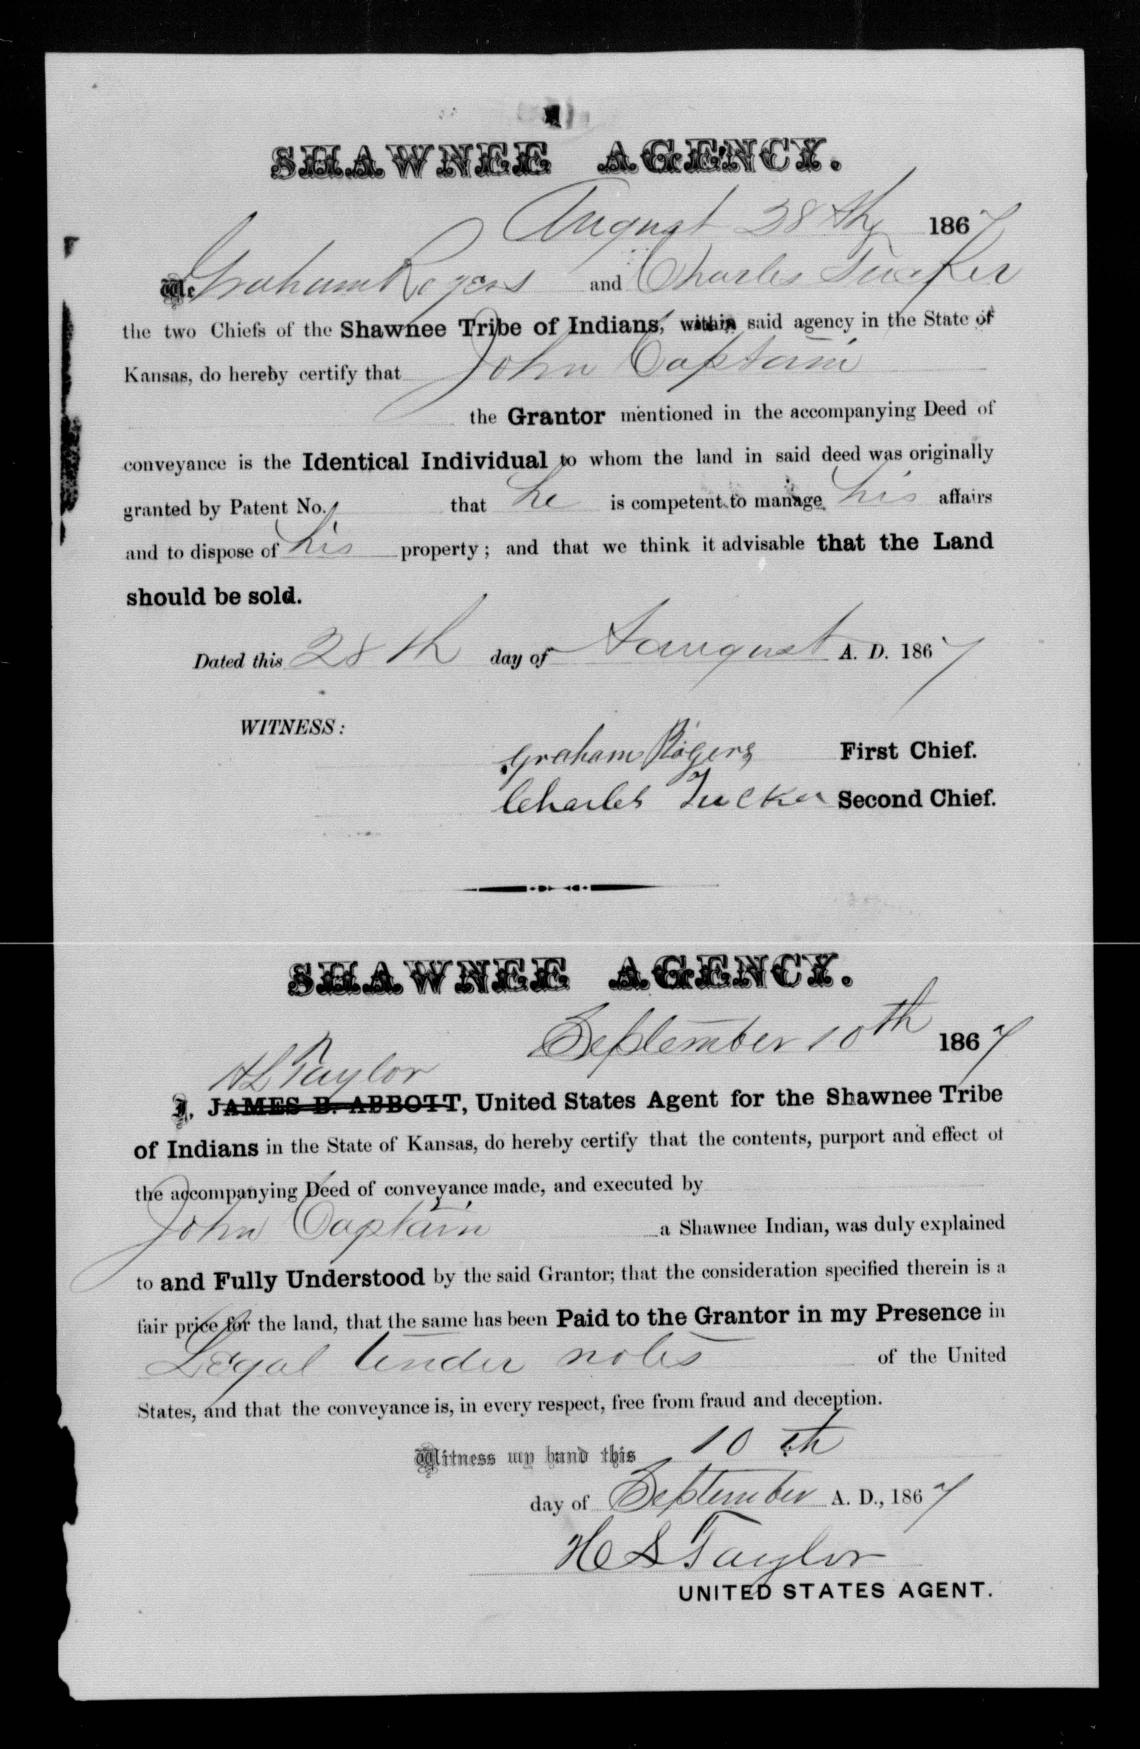 SHAWNEE AGENCY.
August 28th, 1867
We Graham Rogers and Charles Tucker
the two Chiefs of the Shawnee Tribe of Indians, within said agency in the State of
Kansas, do hereby certify that John Captain
the Grantor mentioned in the accompanying Deed of
conveyance is the Identical Individual to whom the land in said deed was originally
granted by Patent No. that he is competent to manage his affairs
and to dispose of his property; and that we think it advisable that the Land
should be sold.
Dated this 28th day of August A. D. 1867
WITNESS:
Graham Rogers First Chief.
Charles Tucker Second Chief.
SHAWNEE AGENCY.
September 10th 1867
Taylor
I, JAMES B. ABBOTT, United States Agent for the Shawnee Tribe
of Indians in the State of Kansas, do hereby certify that the contents, purport and effect of
the accompanying Deed of conveyance made, and executed by
John Captain a Shawnee Indian, was duly explained
to and Fully Understood by the said Grantor; that the consideration specified therein is a
fair price for the land, that the same has been Paid to the Grantor in my Presence in
Legal tender notes of the United
States, and that the conveyance is, in every respect, free from fraud and deception.
Witness my hand this 10th
day of September A. D., 1867
Taylor
UNITED STATES AGENT.